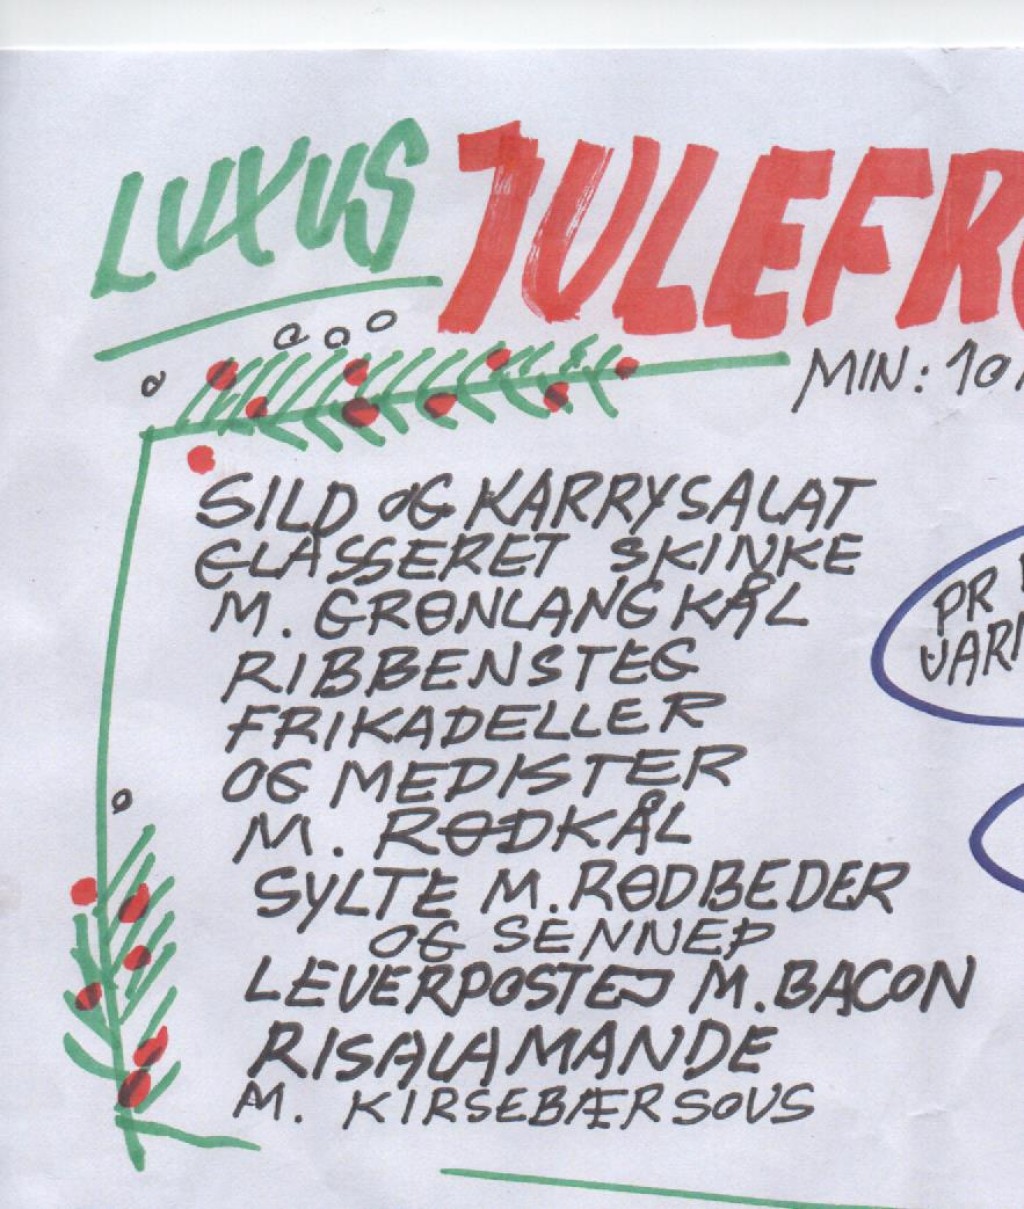 LUXUS JULEFR
MIN: 10
SILD OG KARRYSALAT
GLASSERET SKINKE
M. GRØNLANGKÅL
RIBBENSTEG
FRIKADELLER
OG MEDISTER
M. RØDKÅL
SYLTE M. RØDBEDER
OG SENNEP
LEVERPOSTEJ M. BACON
RISALAMANDE
M. KIRSEBÆRSOVS
PR